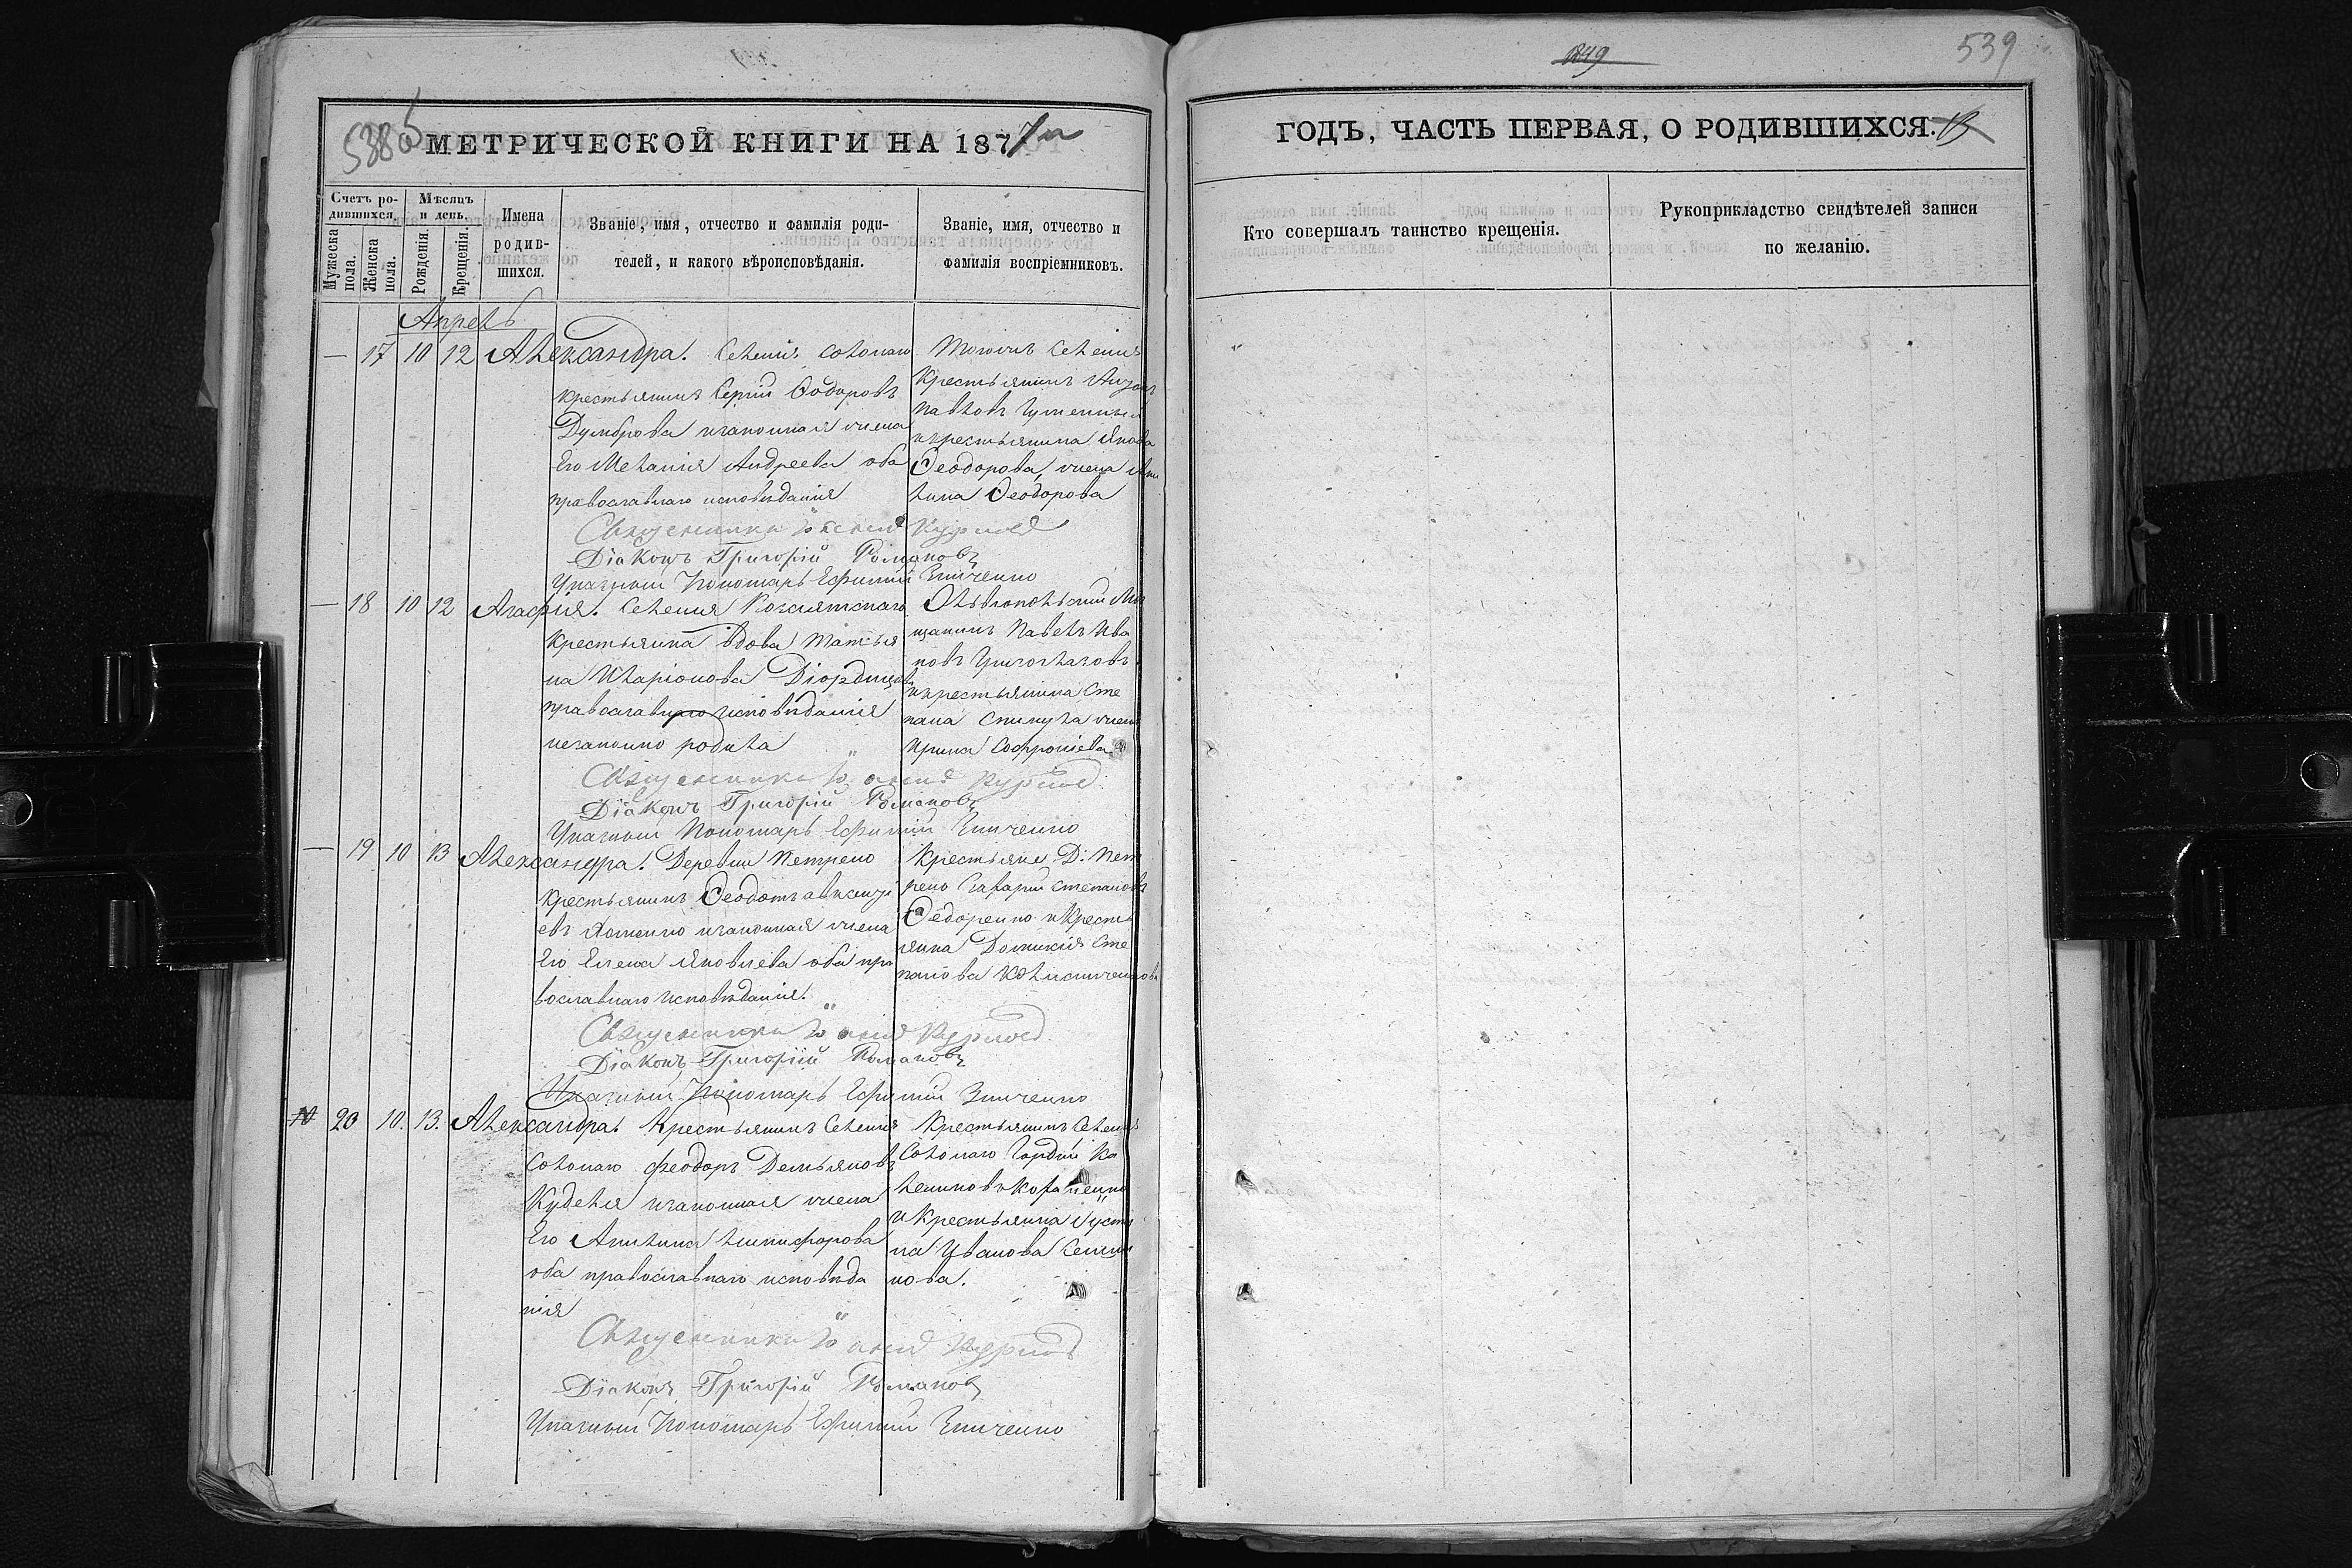 538об
МЕТРИЧЕСКОЙ КНИГИ НА 1877й
Счетъ ро-
дившихся.
Мужеска пола.
Женска пола.
Мѣсяцъ
и день.
Рожденія.
Крещенія.
Имена
родив-
шихся.
Званіе, имя, отчество и фамилія роди-
телей, и какого вѣроисповѣданія.
Званіе, имя, отчество и
фамилія воспріемниковъ.
Апрель
— 17 10 12 Александра. Селенія Солонаго
крестьянинъ Сергій Ѳодоровъ
Думброва и законная жена
Его Меланія Андреева оба
православнаго исповѣданія
Тогожъ Селенія
Крестьянинъ
Павловъ
и крестьянина Якова
Ѳеодорова, жена Аки
лина Ѳеодорова
Священникъ Іоаннъ
Діаконъ Григорій Романовъ
Указный Пономарь Ефимій Зинченко
— 18 10 12 Агафія. Селенія
Крестьянка вдова Татья
на Иларіонова
православнаго исповѣданія
незаконно родила
мѣ
щанинъ Павелъ Ива
новъ
и крестьянина Сте
пана жена
Ирина Софроніева
Священникъ Іоаннъ
Діаконъ Григорій Романовъ
Указный Пономарь Ефимій Зинченко
— 19 10 13 Александра. Деревни Петрено
крестьянинъ Ѳеодотъ Авксенті
евъ и законная жена
Его Елена Яковлева оба пра
вославнаго исповѣданія.
Крестьяне Д: Пет
рено Захарій Степановъ
Ѳедоренко и крестья
янка Домникія Сте
панова
Священникъ Іоаннъ
Діаконъ Григорій Романовъ
Указный Пономарь Ефимій Зинченко
20 10. 13. Александра. Крестьянинъ Селенія
Солонаго Феодоръ Демьяновъ
Куделя и законная жена
Его Акилина Никифорова
оба православнаго исповѣда
нія
Крестьянинъ Селенія
Солонаго Гордій Ка
лениковъ
и Крестьянка Іусти
на Иванова Семени
нова.
Священникъ Іоаннъ
Діаконъ Григорій Романовъ
Указный Пономарь Ефимій Зинченко
1849
539
ГОДЪ, ЧАСТЬ ПЕРВАЯ, О РОДИВШИХСЯ.
Кто совершалъ таинство крещенія.
Рукоприкладство свидѣтелей записи
по желанію.